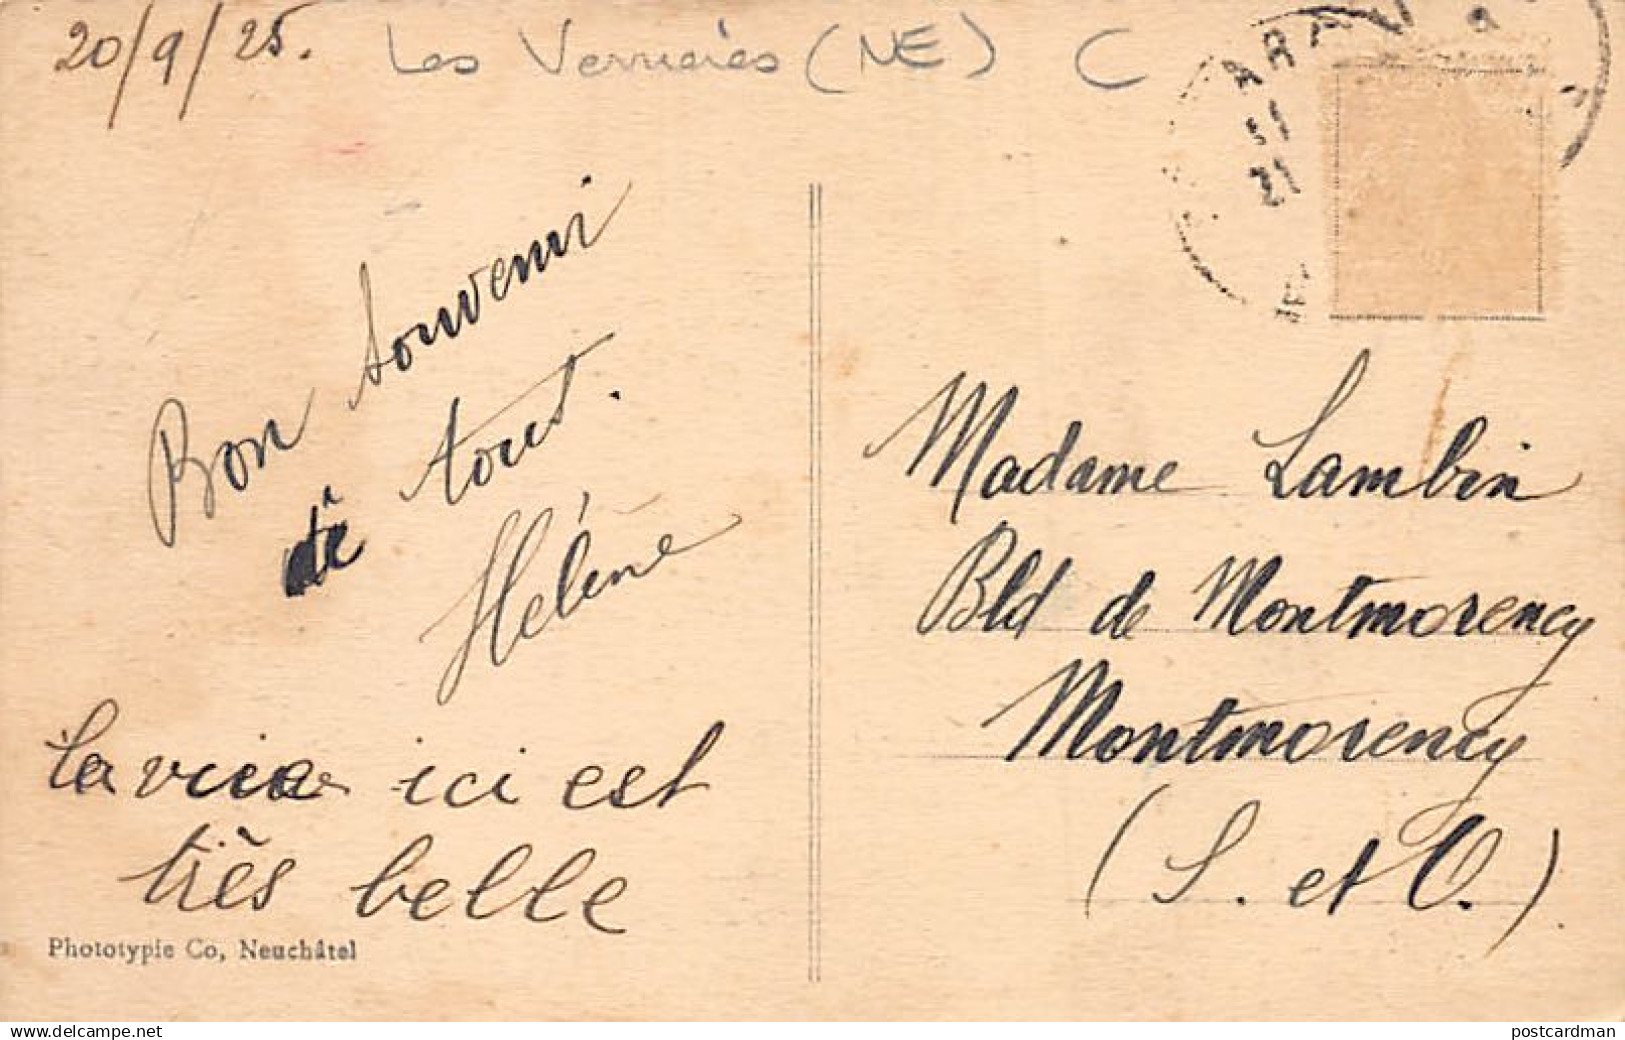 20/9/25. Les Verrières (NE) C
Bon souvenir
à tous.
Hélène
la vie ici est
très belle
Phototypie Co, Neuchâtel
11
21
Madame Lambin
Bld de Montmorency
Montmorency
(S. et O.)
www.delcampe.net
postcardman